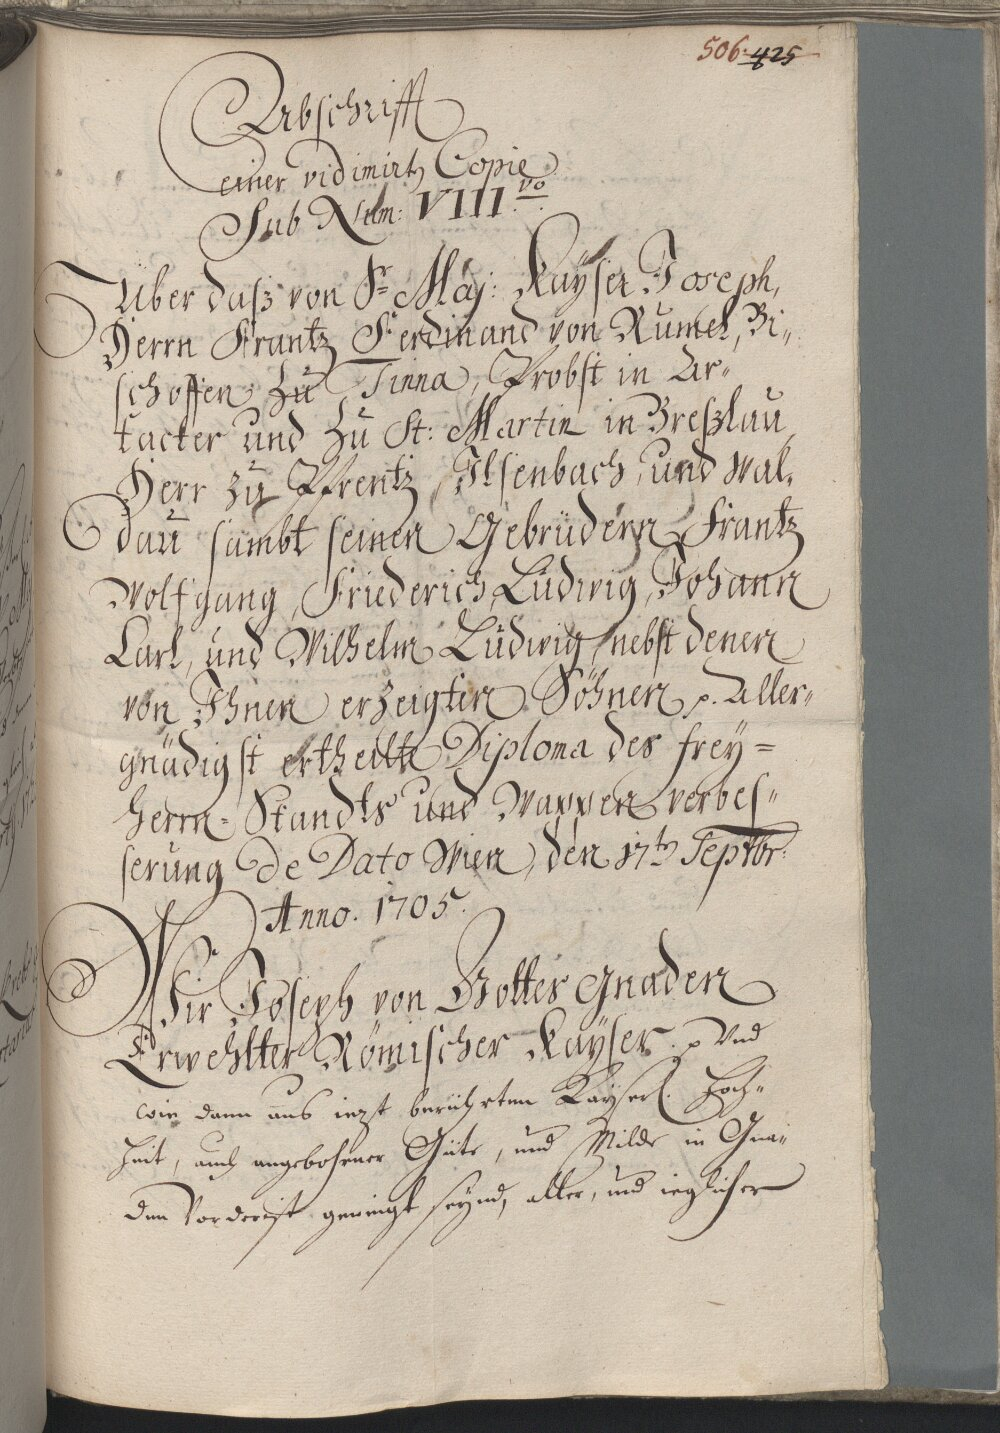 506. 425
Abschrifft
einer vidimirtn Copie
Sub Num: VIII.vo
Über daß von Sr Maÿ: Kaÿser Joseph,
Herrn Frantz Ferdinand von Rumel, Bi-
schoffen zu Tinna, Probst in Ar-
tacker und zu St: Martin in Breßlau
Herr zu Pfrentz, Ilsenbach, und Wal-
dau sambt seinen Gebrüdern Frantz
Wolfgang, Friederich Ludwig, Johann
Carl, und Wilhelm Ludwig, nebst denen
von Ihnen erzeigten Söhnen p. Aller-
gnädigst ertheilte Diploma des frey=
herrn-Standts und Wappen verbes-
serung De Dato Wien, den 17tn Septbr:
Anno. 1705.
Wir Joseph von Gottes gnaden
Erwehlter Römischer Kaÿser p Und
wie dann aus iezt berührten Kayserl. Hoch-
heit, auch angebohrner Güte, und Milde in Gna-
den Vorderist geneigt seynd, aller, und ieglicher